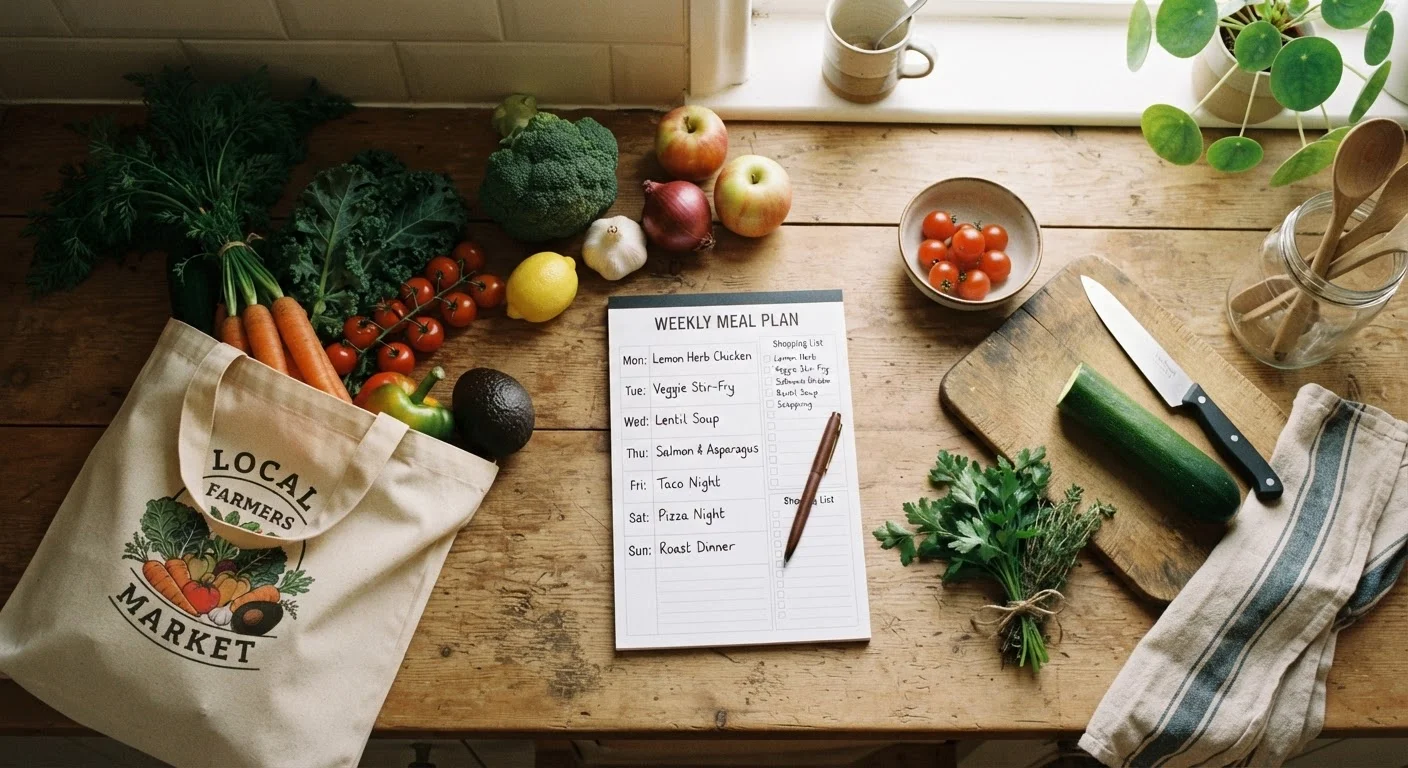 LOCAL
FARMERS
MARKET
WEEKLY MEAL PLAN
Mon: Lemon Herb Chicken
Tue: Veggie Stir-Fry
Wed: Lentil Soup
Thu: Salmon & Asparagus
Fri: Taco Night
Sat: Pizza Night
Sun: Roast Dinner
Shopping List
Herb
Stir Fry
Soup
Shopping List